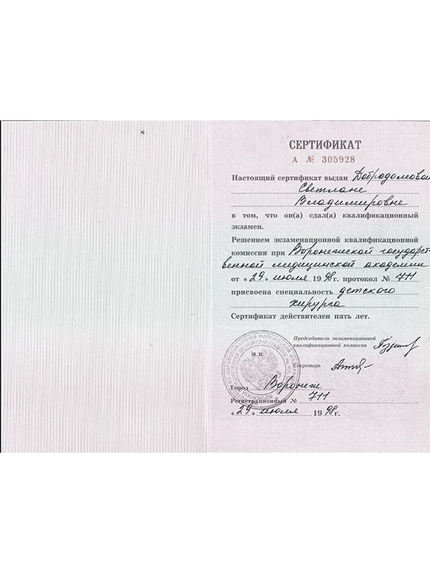 8
СЕРТИФИКАТ
А № 305928
Настоящий сертификат выдан Добродомовой
Светлане
Владимировне
в том, что он(а) сдал(а) квалификационный
экзамен.
Решением экзаменационной квалификационной
комиссии при Воронежской государст-
венной медицинской академии
от «29» июля 1998г. протокол № 711
присвоена специальность детского
хирурга
Сертификат действителен пять лет.
Председатель экзаменационной
квалификационной комиссии
Секретарь
М. П.
Город Воронеж
Регистрационный № 711
«29» июля 1998г.